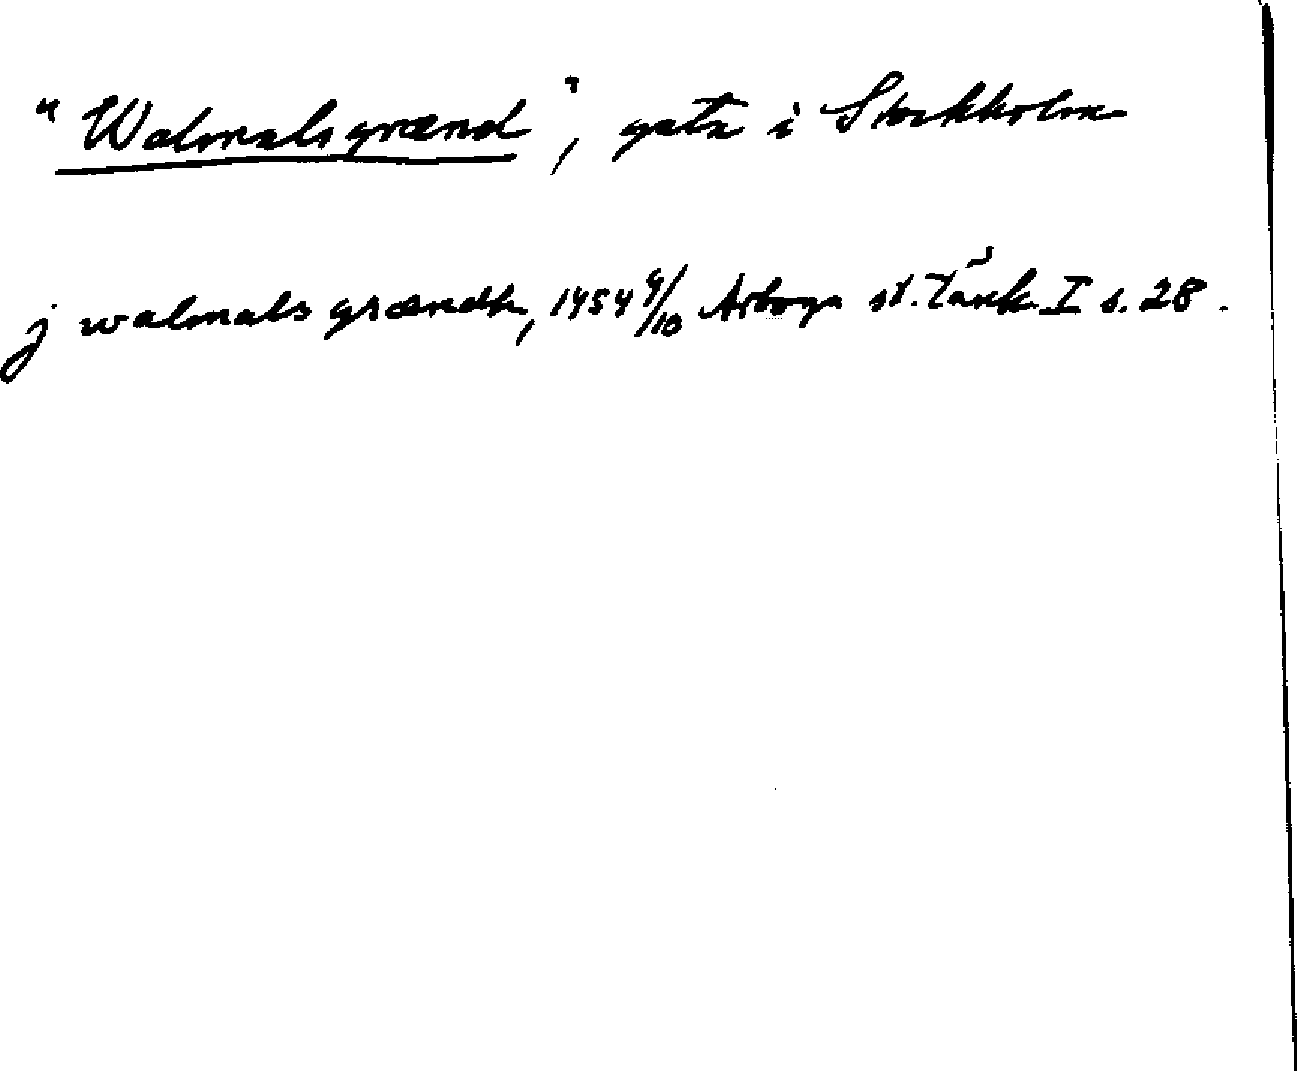 "Walmalsgrænd", gata i Stockholm
j walmals grændh, 1454 4/10 Arboga st. Tänk. I s. 28.